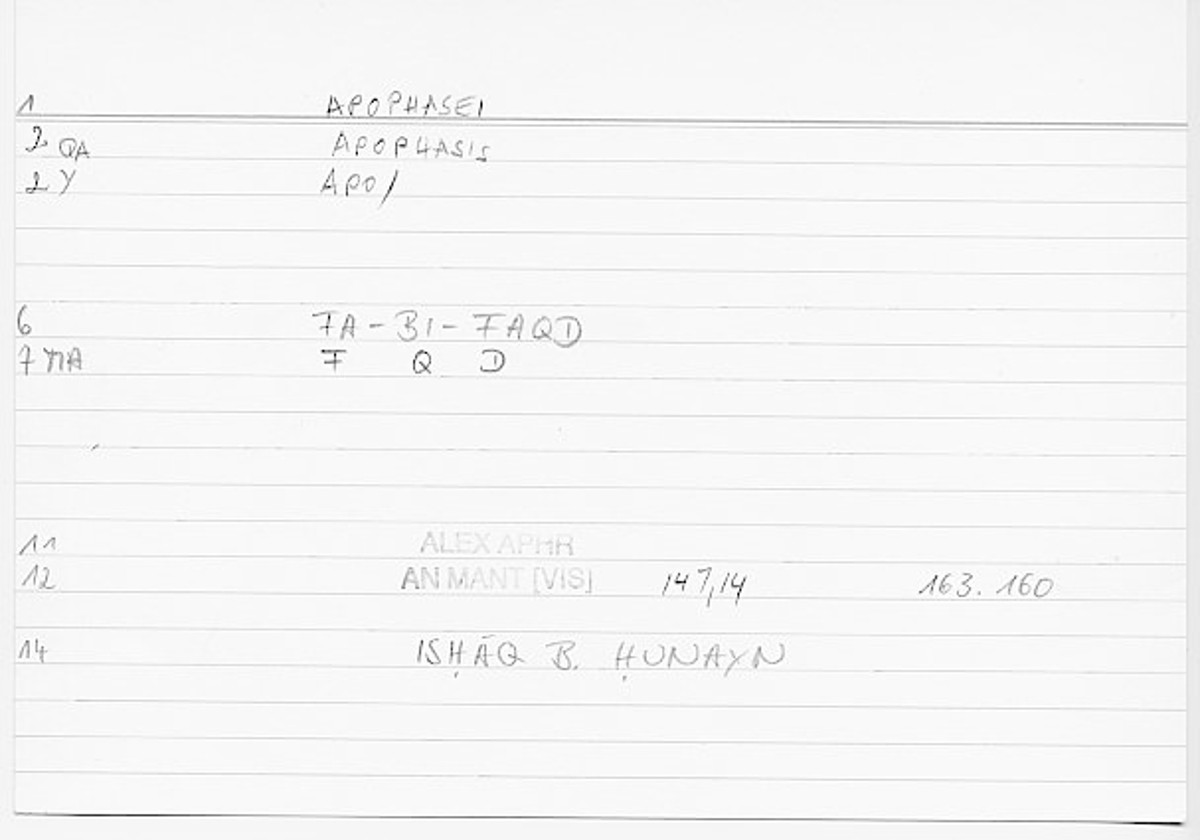 1 APOPHASEI
2 QA APOPHASIS
2 Y APO/
6 FA-BI-FAQD
7 MA F Q D
11 ALEX APHR
12 AN MANT [VIS] 147,14 163.160
14 ISḤĀQ B. ḤUNAYN